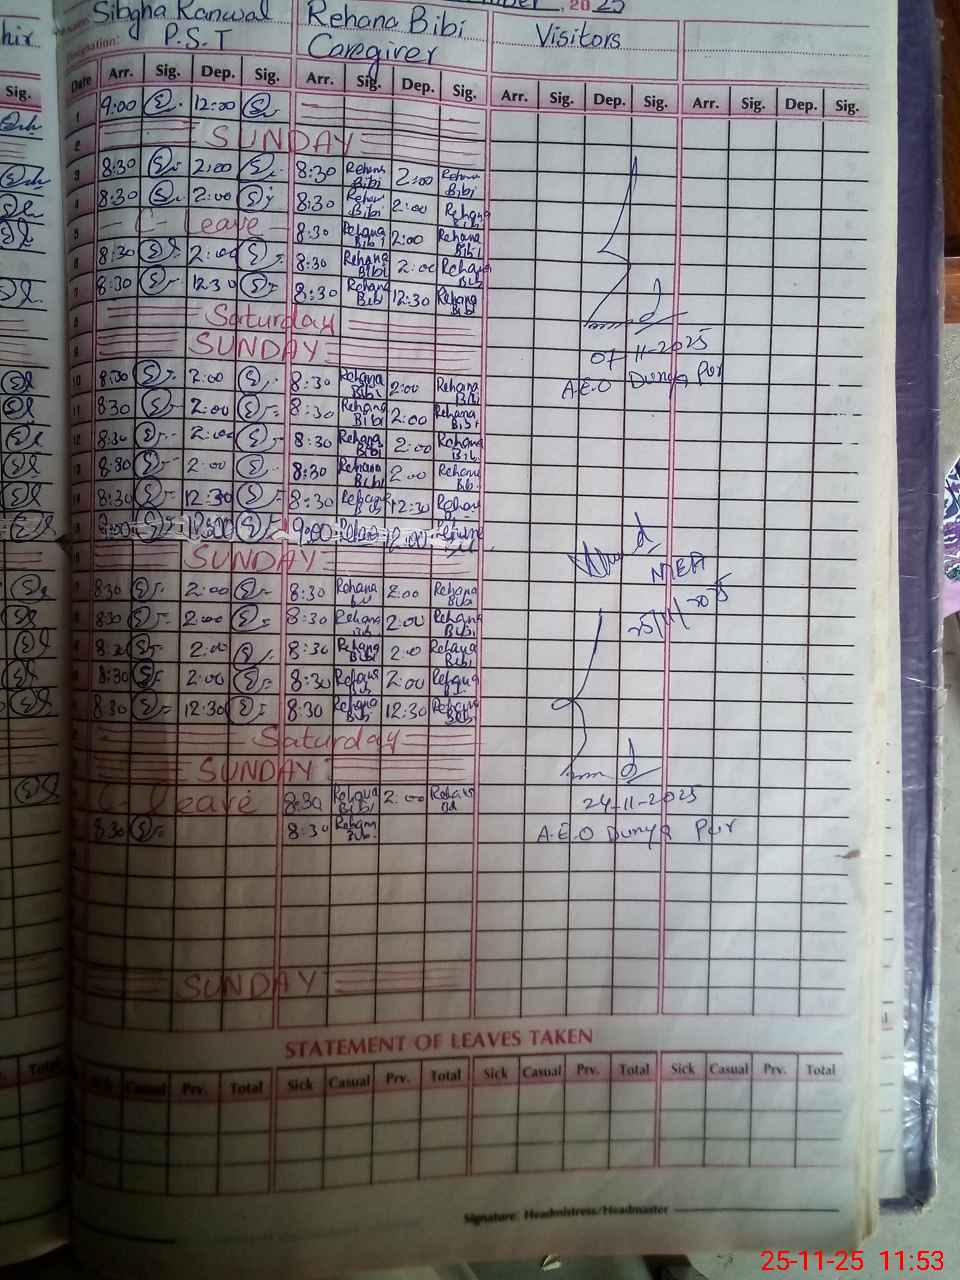 2025
Sibgha Kanwal Rehana Bibi Visitors
Designation: P.S.T Caregiver
Date Arr. Sig. Dep. Sig. Arr. Sig. Dep. Sig. Arr. Sig. Dep. Sig. Arr. Sig. Dep. Sig.
1 9:00 12:00
2 SUNDAY
3 8:30 2:00 8:30 Rehana Bibi 2:00 Rehana Bibi
4 8:30 2:00 8:30 Rehana Bibi 2:00 Rehana Bibi
5 C- Leave 8:30 Rehana Bibi 2:00 Rehana Bibi
6 8:30 2:00 8:30 Rehana Bibi 2:00 Rehana Bibi
7 8:30 12:30 8:30 Rehana Bibi 12:30 Rehana Bibi
8 Saturday
9 SUNDAY
07-11-2025
A.E.O Dunya Pur
10 8:30 2:00 8:30 Rehana Bibi 2:00 Rehana Bibi
11 8:30 2:00 8:30 Rehana Bibi 2:00 Rehana Bibi
12 8:30 2:00 8:30 Rehana Bibi 2:00 Rehana Bib.
13 8:30 2:00 8:30 Rehana Bibi 2:00 Rehana Bibi
14 8:30 12:30 8:30 Rehana 12:30 Rehana
9:00 12:00 9:00 12:00
SUNDAY
MEA
25/11/2025
8:30 2:00 8:30 Rehana 2:00 Rehana Bibi
8:30 2:00 8:30 Rehana Bibi 2:00 Rehana Bibi
8:30 2:00 8:30 Rehana Bibi 2:00 Rehana Bibi
8:30 2:00 8:30 Rehana 2:00 Rehana
8:30 12:30 8:30 Rehana Bibi 12:30 Rehana Bibi
Saturday
SUNDAY
C- leave 8:30 Rehana Bibi 2:00 Rehana
24-11-2025
8:30 8:30 Rehana Bibi
A.E.O Dunya Pur
SUNDAY
STATEMENT OF LEAVES TAKEN
Sick Casual Prv. Total Sick Casual Prv. Total Sick Casual Prv. Total Sick Casual Prv. Total
Signature: Headmistress/Headmaster
25-11-25 11:53